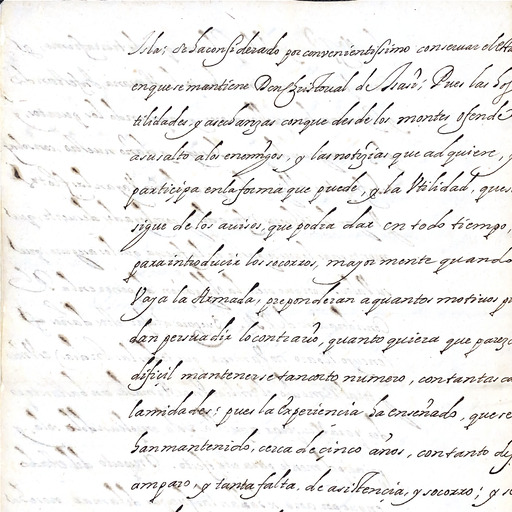 Isla; se ha considerado por convenientissimo conseruar el
en que se mantiene Don Christoual de Isasi; Pues las hos
tilidades, y asechanzas con que desde los montes ofende
a su salto a los enemigos, y las notizias que adquiere, y
participa en la forma que puede, y la Vtilidad, que se
sigue de los auisos, que podra dar en todo tiempo,
para introducir los socorros, mayormente quando
Vaya la Armada, preponderan a quantos motiuos pue
dan persuadir lo contrario, quanto quiera que parezca
dificil mantenerse tan corto numero, con tantas ca
lamidades; pues la Experiencia ha enseñado, que se
han mantenido, cerca de çinco años, con tanto des
amparo, y tanta falta, de asistençia, y socorro; y